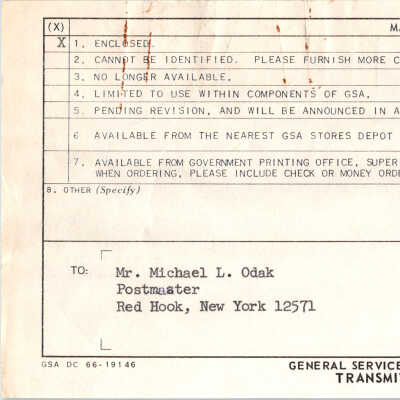 (X) MA
X 1. ENCLOSED.
2. CANNOT BE IDENTIFIED. PLEASE FURNISH MORE C
3. NO LONGER AVAILABLE.
4. LIMITED TO USE WITHIN COMPONENTS OF GSA.
5. PENDING REVISION, AND WILL BE ANNOUNCED IN A
6 AVAILABLE FROM THE NEAREST GSA STORES DEPOT
7. AVAILABLE FROM GOVERNMENT PRINTING OFFICE, SUPER
WHEN ORDERING, PLEASE INCLUDE CHECK OR MONEY ORDE
8. OTHER (Specify)
TO: Mr. Michael L. Odak
Postmaster
Red Hook, New York 12571
GSA DC 66-19146 GENERAL SERVICE
TRANSMI